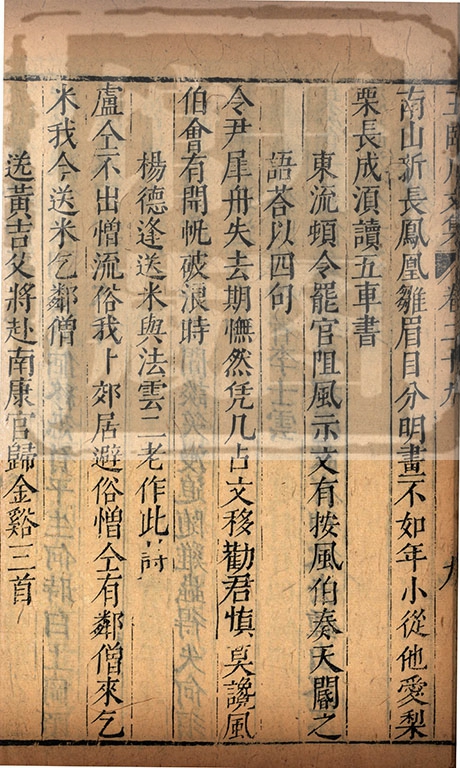 王臨川文集 卷二十九 九
南山新長鳳凰雛眉目分明畫不如年小從他愛梨
栗長成須讀五車書
東流頓令罷官阻風示文有按風伯奏天閽之
語荅以四句
令尹犀舟失去期憮然凭几占文移勸君慎莫讒風
伯會有開帆破浪時
楊德逢送米與法雲二老作此詩
盧仝不出憎流俗我卜郊居避俗憎仝有鄰僧來乞
米我今送米乞鄰僧
送黃吉父將赴南康官歸金谿三首